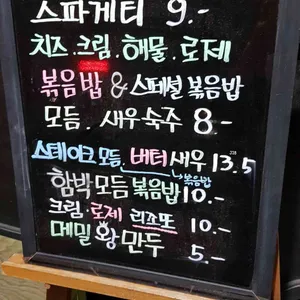 스파게티 9.-
치즈.크림.해물.로제
볶음밥 & 스페셜 볶음밥
모듬.새우숙주 8.-
스테이크모듬.버터새우 13.5
볶음밥
함박모듬볶음밥 10.-
크림.로제 리조또 10.-
메밀왕만두 5.-